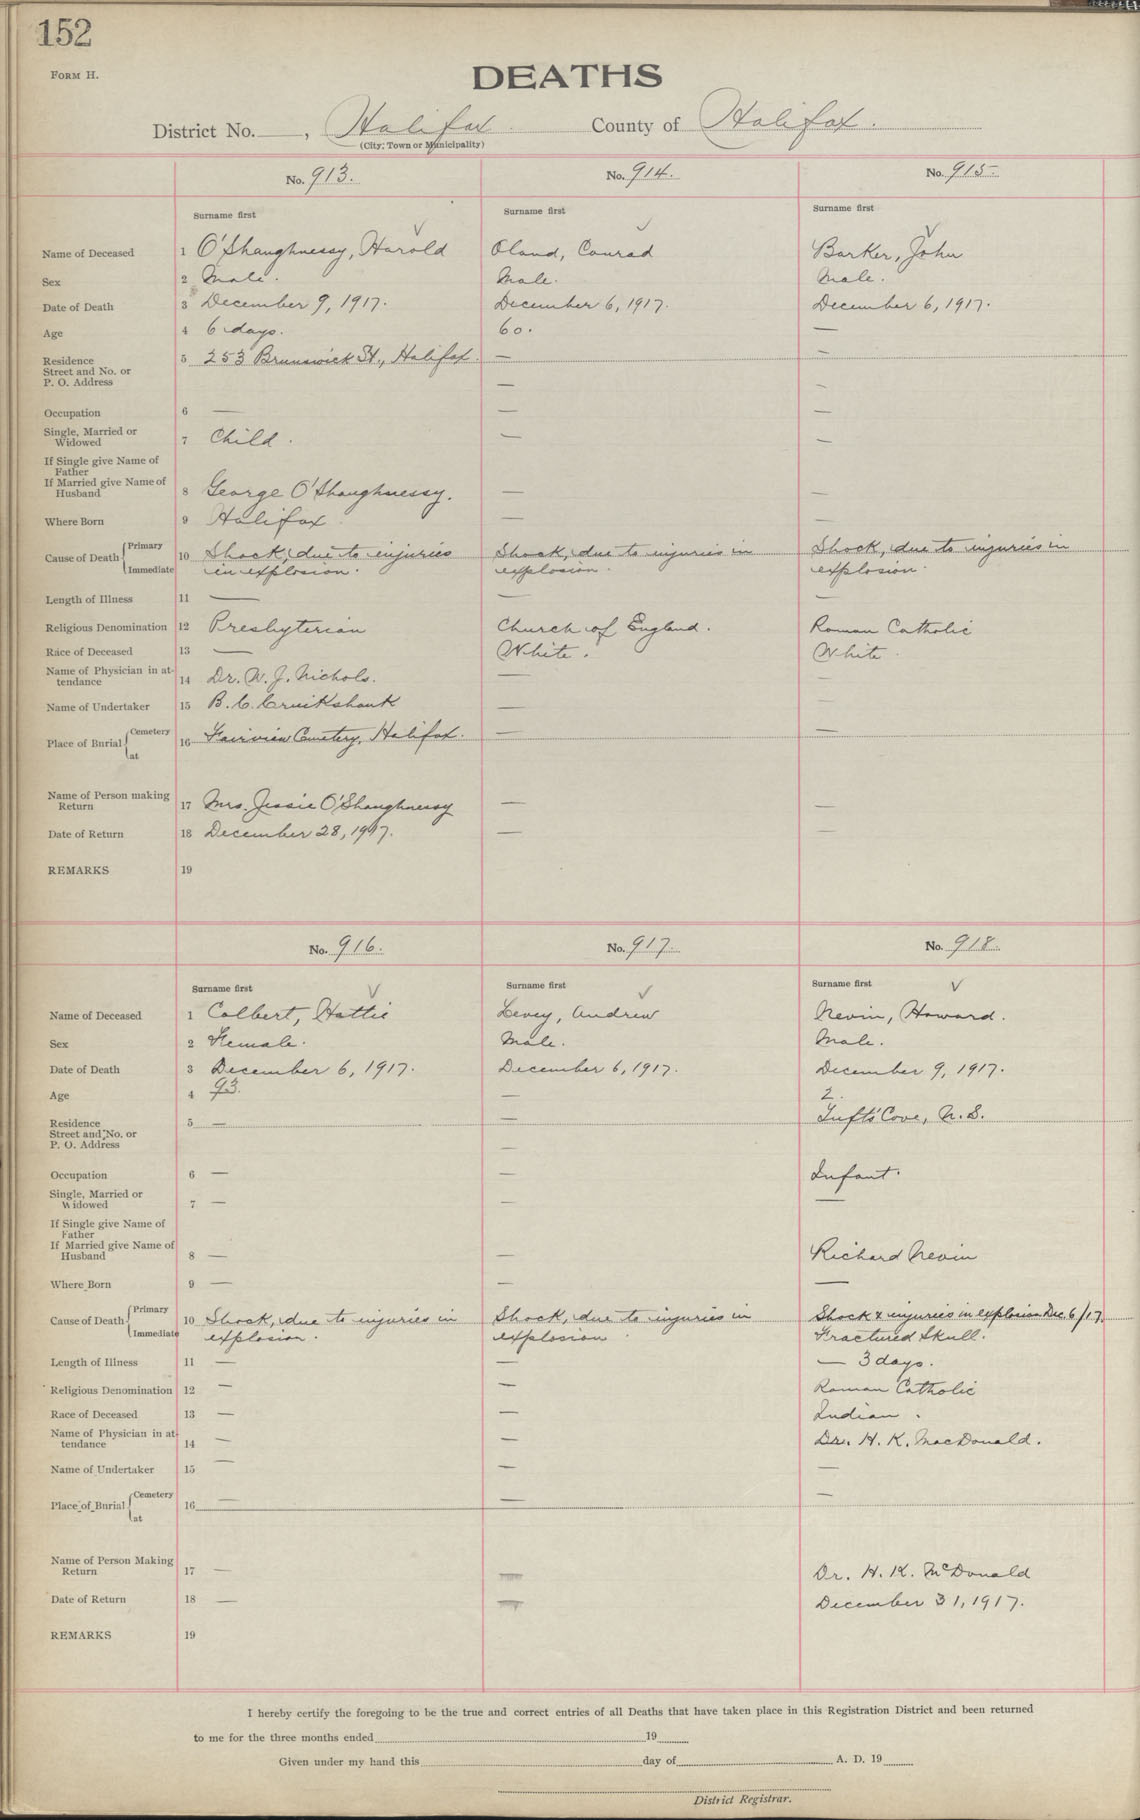 152
FORM H.
DEATHS
District No. , Halifax County of Halifax.
(City, Town or Municipality)
No. 913. No. 914. No. 915.
Surname first Surname first Surname first
Name of Deceased 1 O'Shaughnessy, Harold Oland, Conrad Barker, John
Sex 2 Male. Male. Male.
Date of Death 3 December 9, 1917. December 6, 1917. December 6, 1917.
Age 4 6 days. 60. —
Residence 5 253 Brunswick St., Halifax. — —
Street and No. or
P. O. Address — —
Occupation 6 — — —
Single, Married or
Widowed 7 Child. — —
If Single give Name of
Father
If Married give Name of
Husband 8 George O'Shaughnessy. — —
Where Born 9 Halifax — —
Cause of Death { Primary 10 Shock, due to injuries Shock, due to injuries in Shock, due to injuries in
Immediate in explosion. explosion. explosion.
Length of Illness 11 — — —
Religious Denomination 12 Presbyterian Church of England. Roman Catholic
Race of Deceased 13 — White. White.
Name of Physician in at-
tendance 14 Dr. W. J. Nichols. — —
Name of Undertaker 15 B. C. Cruikshank — —
Place of Burial { Cemetery 16 Fairview Cemetery, Halifax. — —
at
Name of Person making
Return 17 Mrs. Jessie O'Shaughnessy — —
Date of Return 18 December 28, 1917. — —
REMARKS 19
No. 916. No. 917. No. 918.
Surname first Surname first Surname first
Name of Deceased 1 Colbert, Hattie Levey, Andrew Nevin, Howard.
Sex 2 Female. Male. Male.
Date of Death 3 December 6, 1917. December 6, 1917. December 9, 1917.
Age 4 93. — 2.
Residence 5 — — Tufts Cove, N.S.
Street and No. or
P. O. Address —
Occupation 6 — — Infant.
Single, Married or
Widowed 7 — — —
If Single give Name of
Father
If Married give Name of
Husband 8 — — Richard Nevin
Where Born 9 — — —
Cause of Death { Primary 10 Shock, due to injuries in Shock, due to injuries in Shock & injuries in explosion Dec. 6/17.
Immediate explosion. explosion. Fractured Skull.
Length of Illness 11 — — — 3 days.
Religious Denomination 12 — — Roman Catholic
Race of Deceased 13 — — Indian.
Name of Physician in at-
tendance 14 — — Dr. H. K. MacDonald.
Name of Undertaker 15 — — —
Place of Burial { Cemetery 16 — — —
at
Name of Person Making
Return 17 — — Dr. H. K. McDonald
Date of Return 18 — — December 31, 1917.
REMARKS 19
I hereby certify the foregoing to be the true and correct entries of all Deaths that have taken place in this Registration District and been returned
to me for the three months ended 19
Given under my hand this day of A. D. 19
District Registrar.